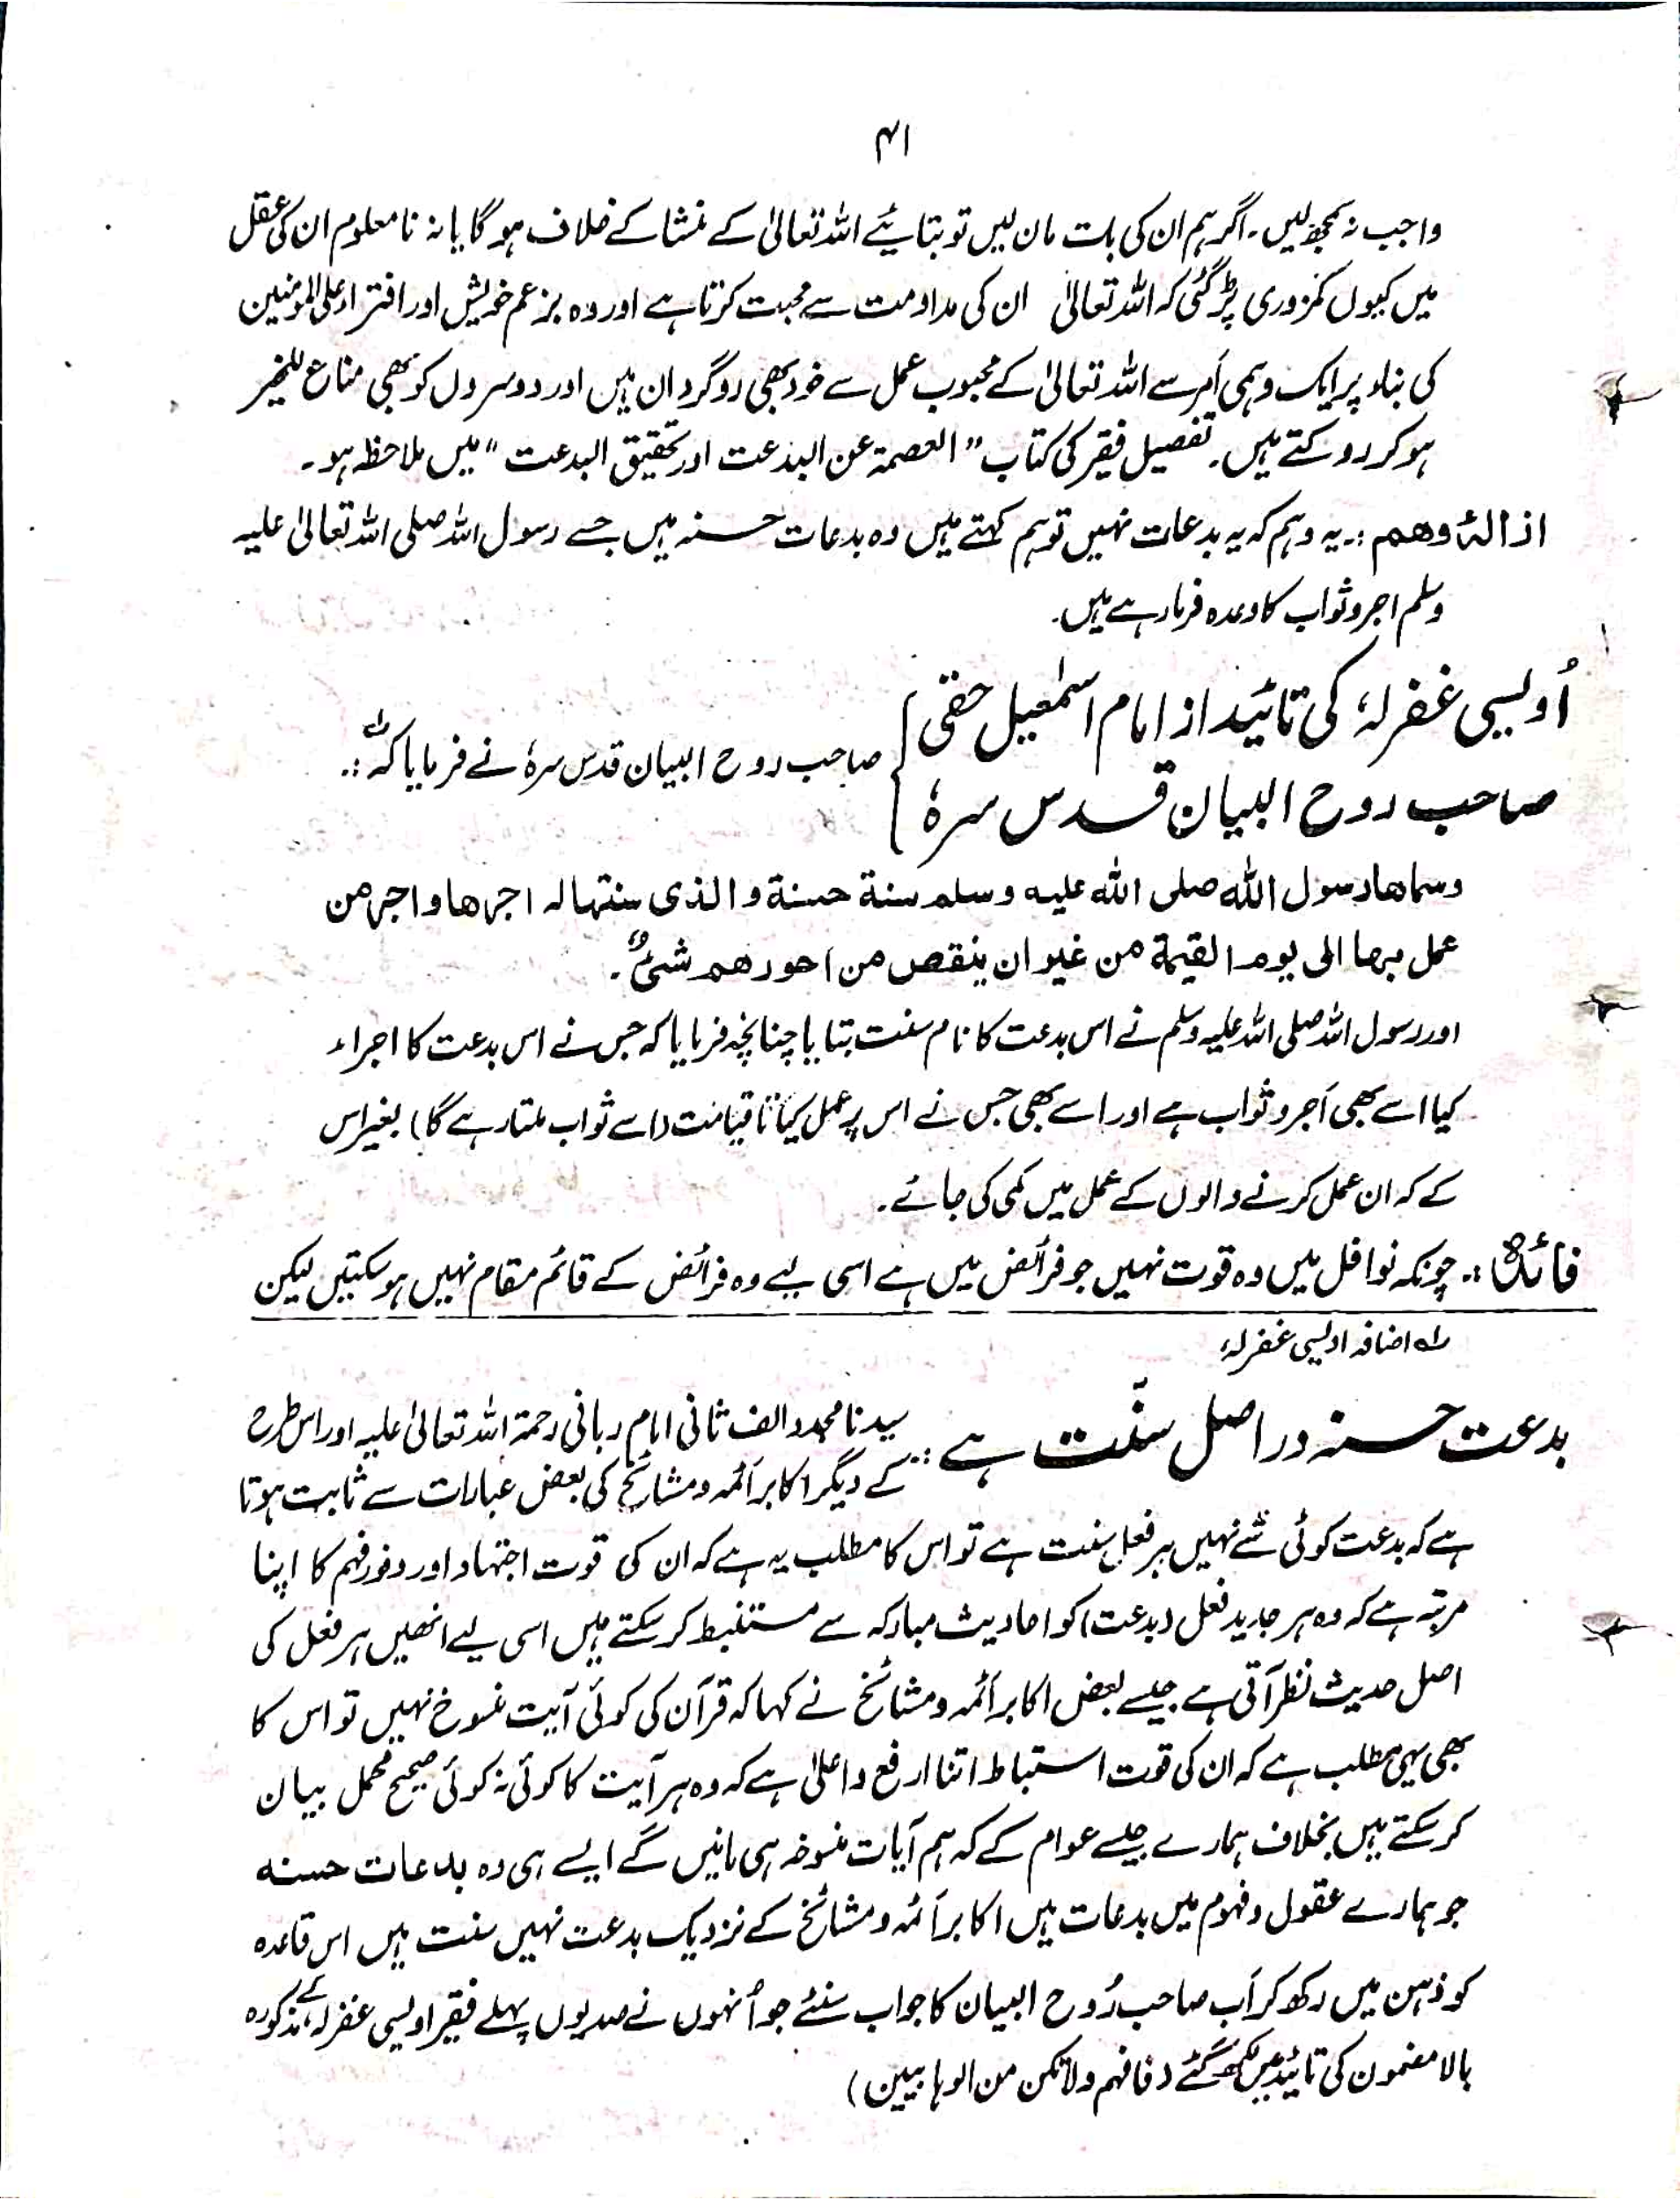 ۴۱
واجب نہ سمجھ لیں۔ اگر ہم ان کی بات مان لیں تو بتائیے اللہ تعالیٰ کے منشا کے خلاف ہو گا یا نہ نا معلوم ان کی عقل
میں کیوں کمزوری پڑ گئی کہ اللہ تعالیٰ ان کی مداومت سے محبت کرتا ہے اور وہ بزعم خویش اور افتراء علی المؤمنین
کی بناء پر ایک وہمی اَمر سے اللہ تعالیٰ کے محبوب عمل سے خود بھی روگردان ہیں اور دوسروں کو بھی مناع للخیر
ہو کر روکتے ہیں۔ تفصیل فقیر کی کتاب "العصمۃ عن البدعت اور تحقیق البدعت" میں ملاحظہ ہو۔
ازالۂ وھم :۔ یہ وہم کہ یہ بدعات نہیں تو ہم کہتے ہیں وہ بدعات حسنہ ہیں جسے رسول اللہ صلی اللہ تعالیٰ علیہ
وسلم اجر و ثواب کا وعدہ فرما رہے ہیں۔
اُویسی غفرلہٗ کی تائید از امام اسمٰعیل حقی
صاحب روح البیان قدس سرہٗ
صاحب روح البیان قدس سرہٗ نے فرمایا کہ :۔
وسماھا رسول اللہ صلی اللہ علیہ وسلم سنۃ حسنۃ والذی سنتھا لہ اجرھا واجر من
عمل بھا الی یوم القیمۃ من غیر ان ینقص من اجورھم شیٔ۔
اور رسول اللہ صلی اللہ علیہ وسلم نے اس بدعت کا نام سنت بتایا چنانچہ فرمایا کہ جس نے اس بدعت کا اجراء
کیا اسے بھی اَجر و ثواب ہے اور اسے بھی جس نے اس پر عمل کیا تا قیامت (اسے ثواب ملتا رہے گا) بغیر اس
کے کہ ان عمل کرنے والوں کے عمل میں کمی کی جائے۔
فائدہ :۔ چونکہ نوافل میں وہ قوت نہیں جو فرائض میں ہے اسی لیے وہ فرائض کے قائم مقام نہیں ہو سکتیں لیکن
لہ اضافہ اویسی غفرلہٗ
بدعت حسنہ در اصل سنّت ہے :۔ سیدنا مجدد الف ثانی امام ربانی رحمۃ اللہ تعالیٰ علیہ اور اس طرح
کے دیگر اکابر اَئمہ و مشائخ کی بعض عبارات سے ثابت ہوتا
ہے کہ بدعت کوئی شے نہیں ہر فعل سنت ہے تو اس کا مطلب یہ ہے کہ ان کی قوت اجتہاد اور وفور فہم کا اپنا
مرتبہ ہے کہ وہ ہر جدید فعل (بدعت) کو احادیث مبارکہ سے مستنبط کر سکتے ہیں اسی لیے انھیں ہر فعل کی
اصل حدیث نظر آتی ہے جیسے بعض اکابر اَئمہ و مشائخ نے کہا کہ قرآن کی کوئی آیت منسوخ نہیں تو اس کا
بھی یہی مطلب ہے کہ ان کی قوت استباط اتنا ارفع و اعلیٰ ہے کہ وہ ہر آیت کا کوئی نہ کوئی صحیح محمل بیان
کر سکتے ہیں بخلاف ہمارے جیسے عوام کے کہ ہم آیات منسوخہ ہی مانیں گے ایسے ہی وہ بدعات حسنہ
جو ہمارے عقول و فہوم میں بدعات ہیں اکابر اَئمہ و مشائخ کے نزدیک بدعت نہیں سنت ہیں اس قاعدہ
کو ذہن میں رکھ کر اَب صاحب رُوح البیان کا جواب سنئے جو اُنہوں نے صدیوں پہلے فقیر اویسی غفرلہٗ کے مذکورہ
بالا مضمون کی تائید میں لکھ گئے (فافہم ولا تکن من الوہابیین)